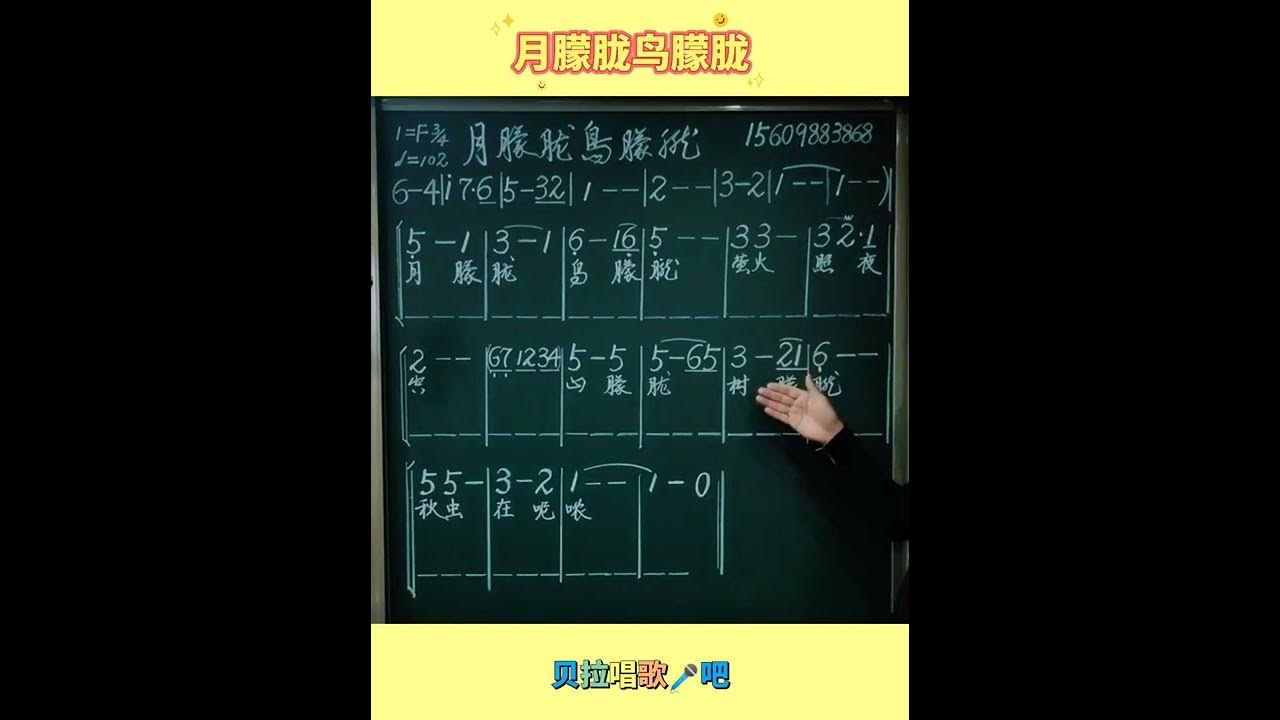 月朦胧鸟朦胧
1=F 3/4 月朦胧鸟朦胧 15609883868
♩=102
6-4|i 7·6|5-32|1--|2--|3-2|1--|1--)|
5-1|3-1|6-16|5--|33-|32·1
月 朦 胧 鸟 朦 胧 萤火 照 夜
2--|671234|5-5|5-65|3-21|6--
空 山 朦 胧 树 朦 胧
55-|3-2|1--|1-0
秋虫 在 呢 哝
贝拉唱歌🎤吧